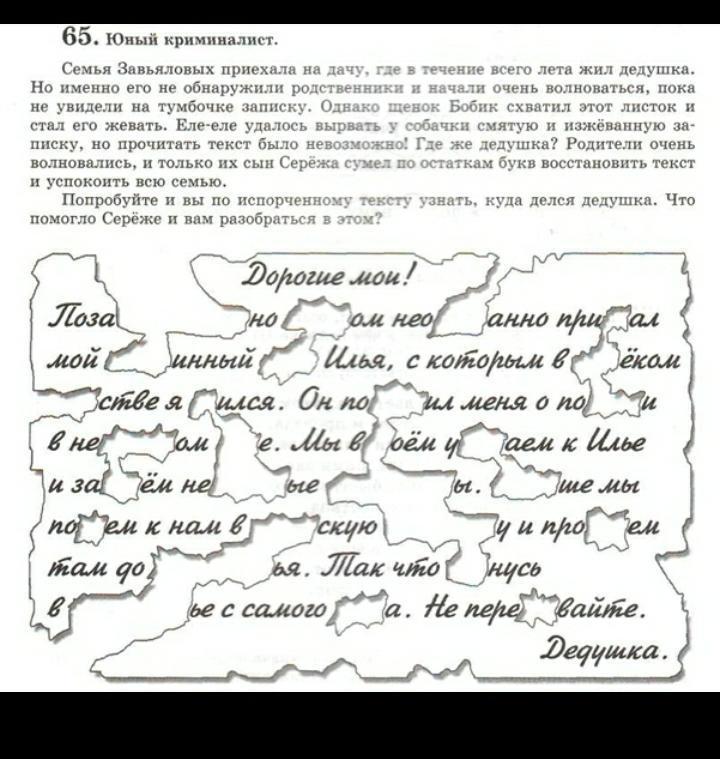 65. Юный криминалист.
Семья Завьяловых приехала на дачу, где в течение всего лета жил дедушка.
Но именно его не обнаружили родственники и начали очень волноваться, пока
не увидели на тумбочке записку. Однако щенок Бобик схватил этот листок и
стал его жевать. Еле-еле удалось вырвать у собачки смятую и изжёванную за-
писку, но прочитать текст было невозможно! Где же дедушка? Родители очень
волновались, и только их сын Серёжа сумел по остаткам букв восстановить текст
и успокоить всю семью.
Попробуйте и вы по испорченному тексту узнать, куда делся дедушка. Что
помогло Серёже и вам разобраться в этом?
Дорогие мои!
Поза но ом нео анно при ал
мой инный Илья, с которым в ёком
стве я ился. Он по ил меня о по и
в не ом е. Мы в оём у аем к Илье
и за ём не ые ы. ше мы
по ем к нам в скую у и про ем
там до ья. Так что нусь
в ье с самого а. Не пере вайте.
Дедушка.